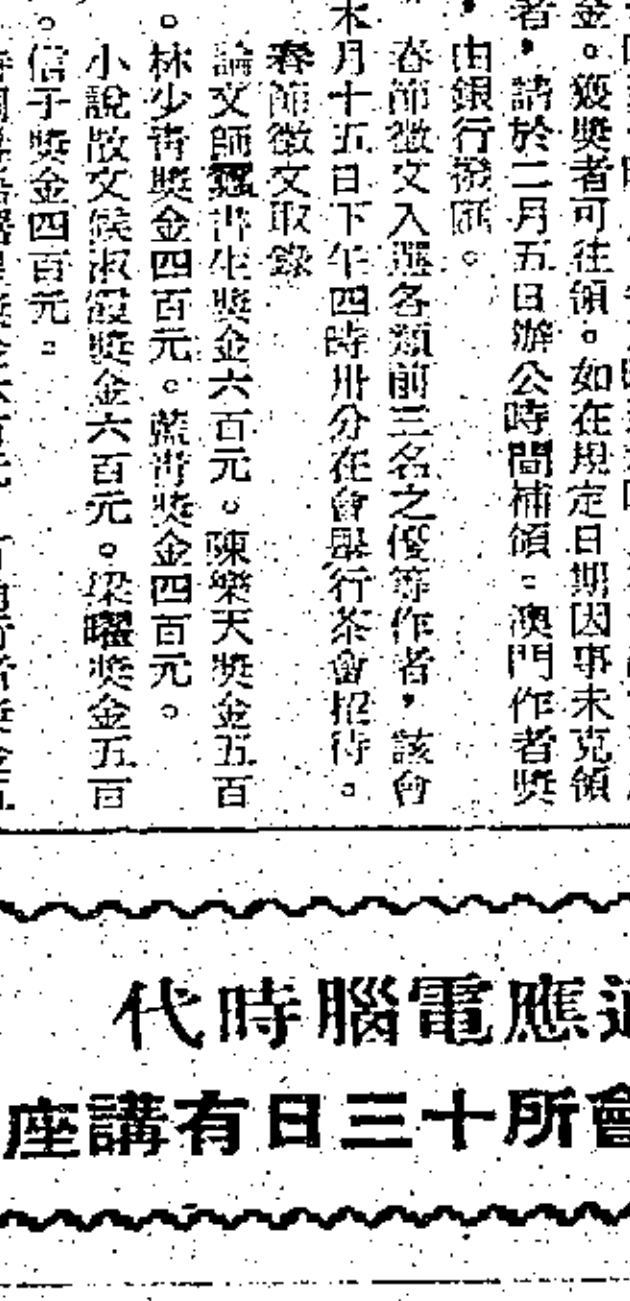 金。獲獎者可往領。如在規定日期因事未克領
者，請於二月五日辦公時間補領。澳門作者獎
，由銀行撥匯。
春節徵文入選各類前三名之優等作者，該會
月十五日下午四時卅分在會舉行茶會招待。
春節徵文取錄
論文師蠶書生獎金六百元。陳樂天獎金五百
。林少青獎金四百元。藍青獎金四百元。
小說散文侯淑霞獎金六百元。梁曜獎金五百
。信子獎金四百元。
應電腦時代
會所十三日有講座